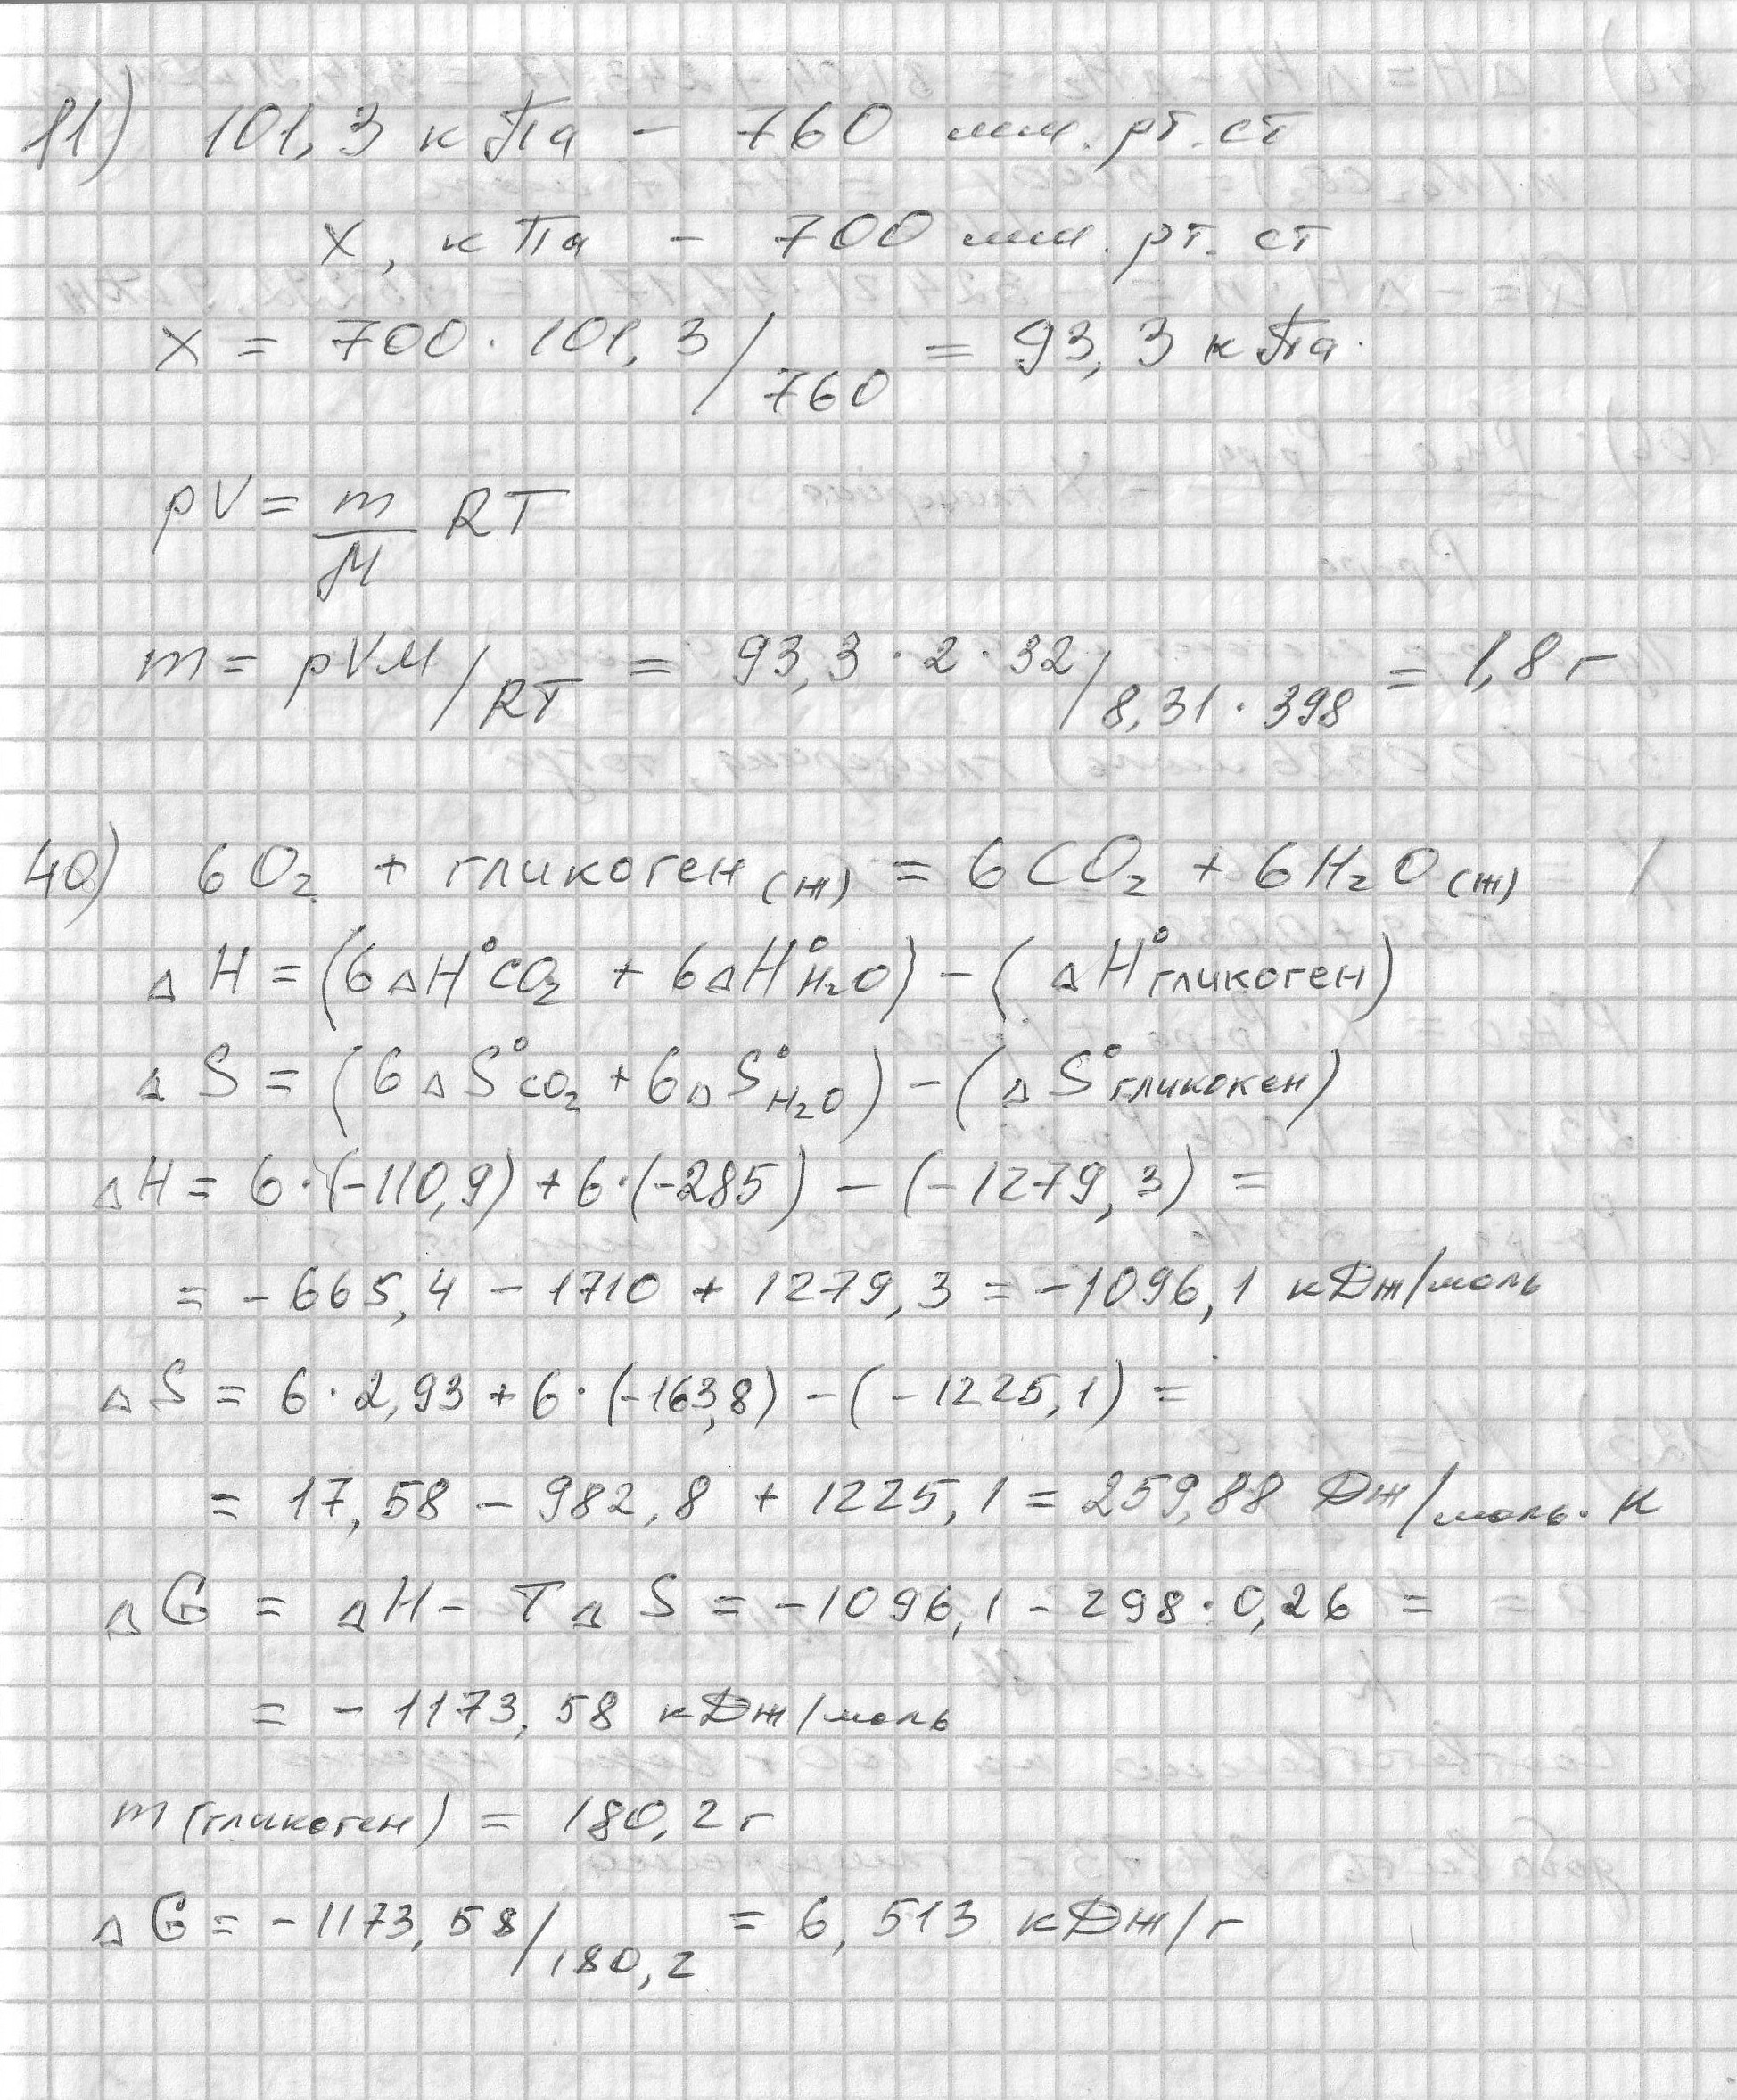 11) 101,3 кПа - 760 мм. рт. ст
x, кПа - 700 мм. рт. ст
x = 700 · 101,3 / 760 = 93,3 кПа.
pV = m/M RT
m = pVM / RT = 93,3 · 2 · 32 / 8,31 · 398 = 1,8 г
40) 6O₂ + гликоген (ж) = 6CO₂ + 6H₂O (ж)
ΔH = (6ΔH°CO₂ + 6ΔH°H₂O) - (ΔH°гликоген)
ΔS = (6ΔS°CO₂ + 6ΔS°H₂O) - (ΔS°гликокен)
ΔH = 6·(-110,9) + 6·(-285) - (-1279,3) =
= -665,4 - 1710 + 1279,3 = -1096,1 кДж/моль
ΔS = 6 · 2,93 + 6 · (-163,8) - (-1225,1) =
= 17,58 - 982,8 + 1225,1 = 259,88 Дж/моль·К
ΔG = ΔH - TΔS = -1096,1 - 298 · 0,26 =
= -1173,58 кДж/моль
m (гликоген) = 180,2 г
ΔG = -1173,58 / 180,2 = 6,513 кДж/г